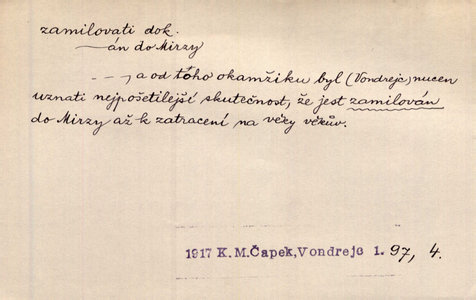 zamilovati dok.
—án do Mirzy
– – –, a od toho okamžiku byl (Vondrejc) nucen
uznati nejpošetilejší skutečnost, že jest zamilován
do Mirzy až k zatracení na věky věkův.
1917 K. M. Čapek, Vondrejc 1. 97, 4.